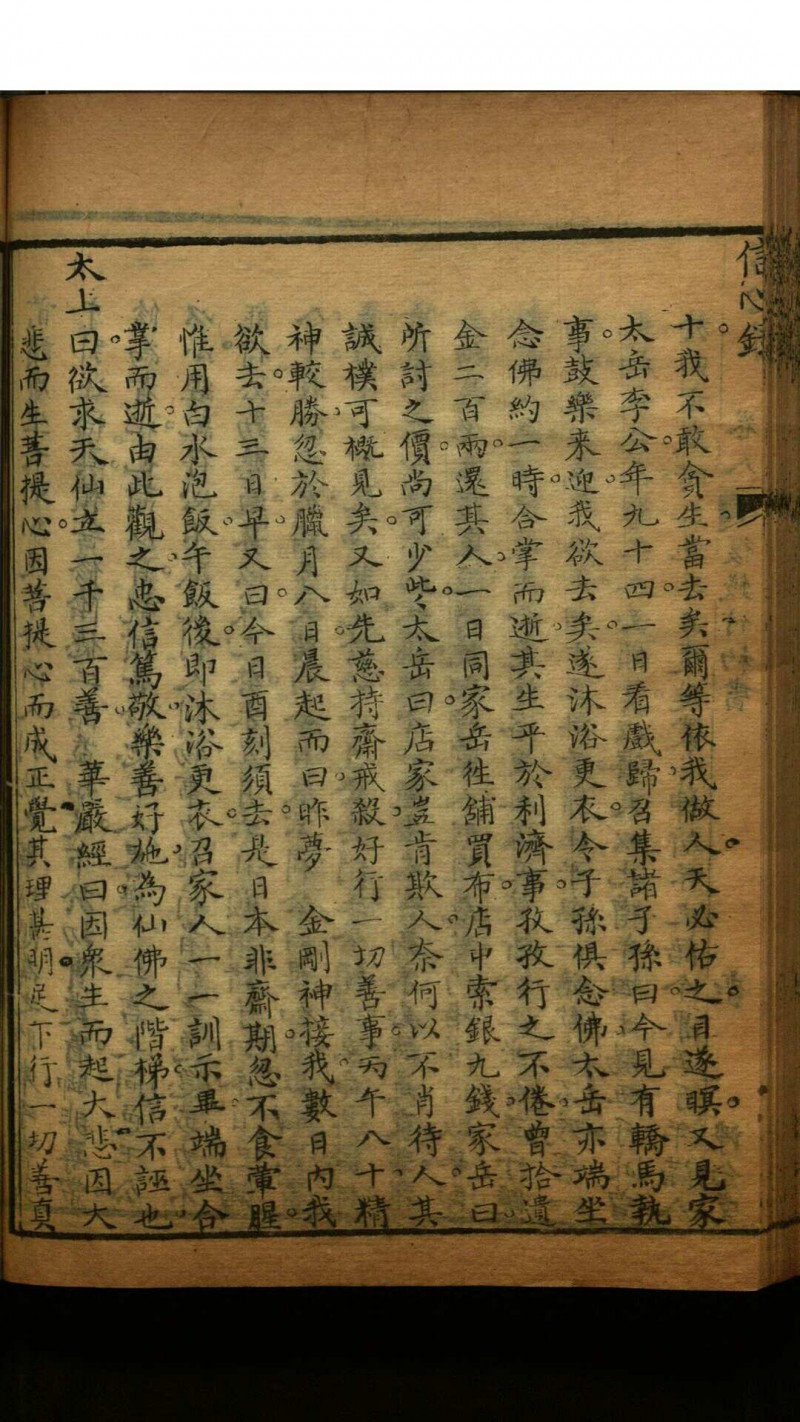 信心錄
十我不敢貪生當去矣爾等依我做人天必佑之目遂暝又見家
太岳李公年九十四一日看戲歸召集諸子孫曰今見有轎馬執
事鼓樂来迎我欲去矣遂沐浴更衣令子孫俱念佛太岳亦端坐
念佛約一時合掌而逝其生平於利濟事孜孜行之不倦曾拾遺
金二百兩還其人一日同家岳徃舖買布店中索銀九錢家岳曰
所討之價尚可少些太岳曰店家豈肯欺人奈何以不肖待人其
誠樸可概見矣又如先慈持齋戒殺好行一切善事丙午八十精
神較勝忽於臘月八日晨起而曰昨夢　金剛神接我數日內我
欲去十三日早又曰今日酉刻須去是日本非齋期忽不食葷腥
惟用白水泡飯午飯後即沐浴更衣召家人一一訓示畢端坐合
掌而逝由此觀之忠信篤敬樂善好施為仙佛之階梯信不誣也
太上曰欲求天仙立一千三百善　華嚴經曰因衆生而起大悲因大
悲而生菩提心因菩提心而成正覺其理甚明足下行一切善真